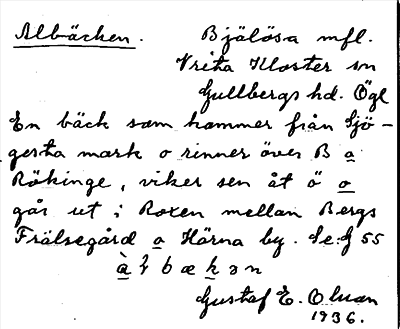 Albäcken. Bjälösa mfl.
Vreta Kloster sn
Gullbergs hd. Ögl
En bäck som kommer från Sjö-
gesta mark o rinner över B a
Rökinge, viker sen åt ö o
går ut i Roxen mellan Bergs
Frälsegård o Härna by. Se: G 55
Gustaf E. Olsson
1936.